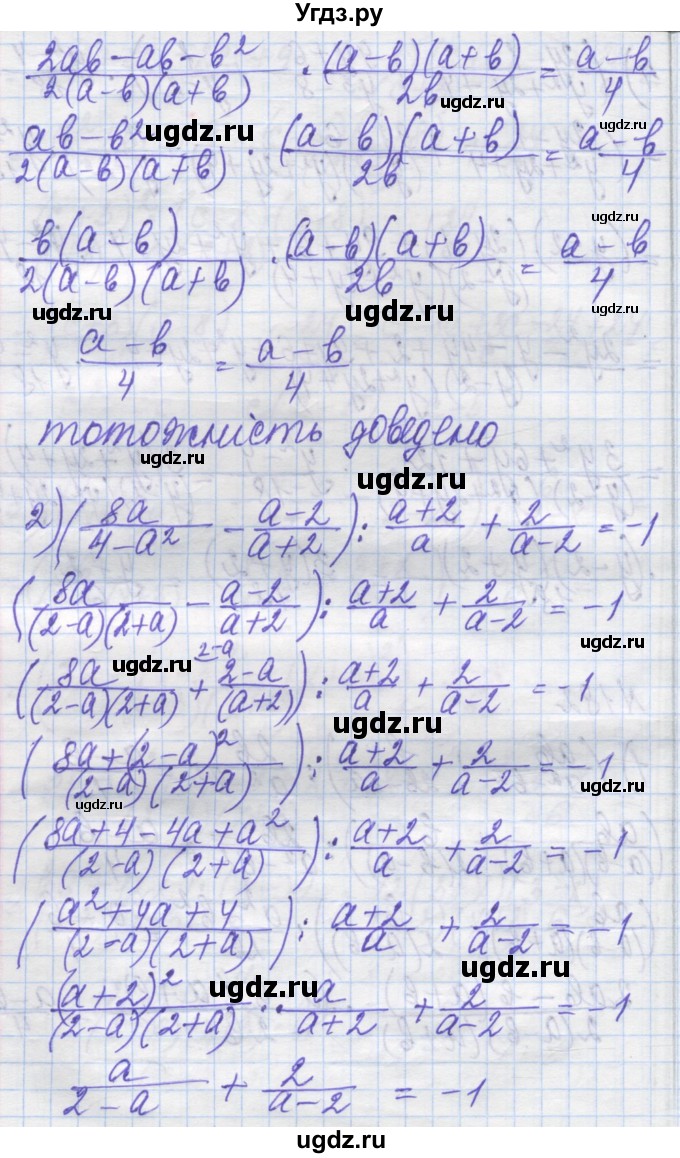 Угдз.ру
(2ab - ab - b²)/(2(a-b)(a+b)) · ((a-b)(a+b))/(2b) = (a-b)/4
ugdz.ru
ugdz.ru
(ab - b²)/(2(a-b)(a+b)) · ((a-b)(a+b))/(2b) = (a-b)/4
ugdz.ru
ugdz.ru
(b(a-b))/(2(a-b)(a+b)) · ((a-b)(a+b))/(2b) = (a-b)/4
ugdz.ru ugdz.ru ugdz.ru
(a-b)/4 = (a-b)/4
тотожність доведено
ugdz.ru ugdz.ru
2) (8a/(4-a²) - (a-2)/(a+2)) : (a+2)/a + 2/(a-2) = -1
(8a/((2-a)(2+a)) - (a-2)/(a+2)) : (a+2)/a + 2/(a-2) = -1
ugdz.ru
ugdz.ru 2-a
(8a/((2-a)(2+a)) + (2-a)/(a+2)) : (a+2)/a + 2/(a-2) = -1
ugdz.ru
(8a+(2-a)²/((2-a)(2+a))) : (a+2)/a + 2/(a-2) = -1
ugdz.ru ugdz.ru
((8a+4-4a+a²)/((2-a)(2+a))) : (a+2)/a + 2/(a-2) = -1
((a²+4a+4)/((2-a)(2+a))) : (a+2)/a + 2/(a-2) = -1
ugdz.ru
ugdz.ru
(a+2)²/((2-a)(2+a)) · a/(a+2) + 2/(a-2) = -1
a/(2-a) + 2/(a-2) = -1
ugdz.ru